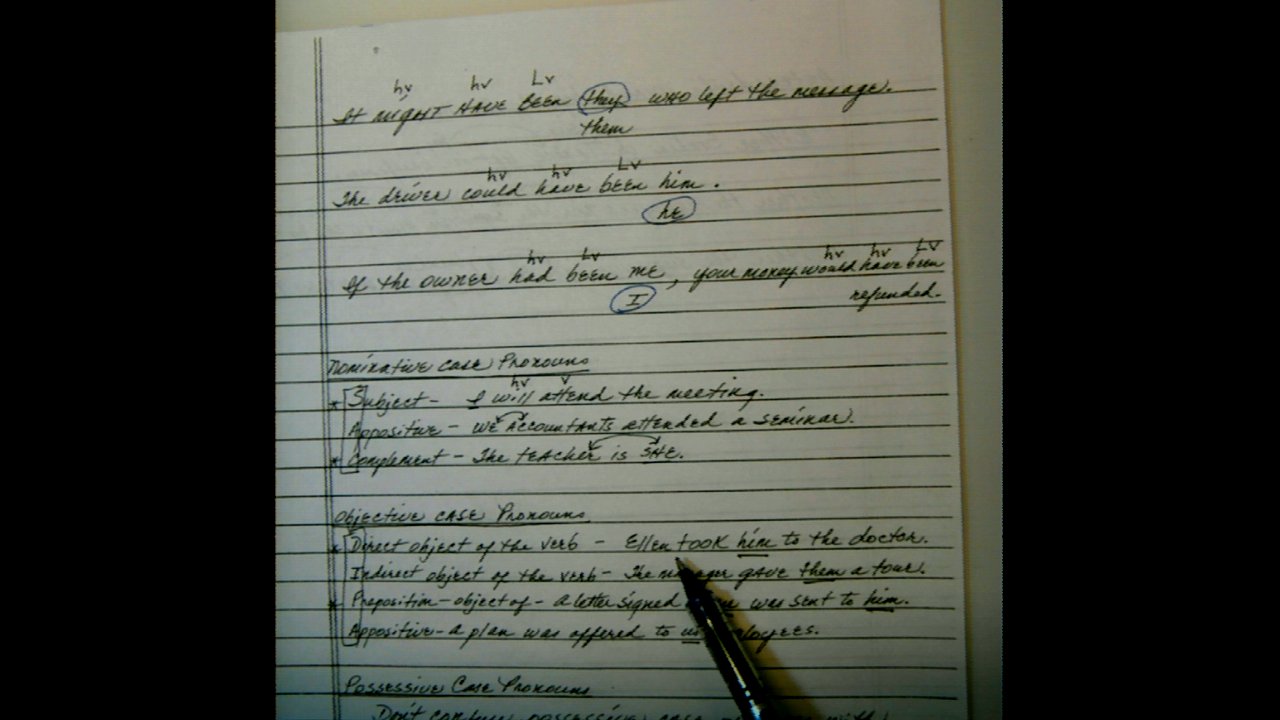 hv hv Lv
It might have been they who left the message.
them
hv hv Lv
The driver could have been him.
he
hv Lv hv hv LV
If the owner had been me, your money would have been
I refunded.
Nominative Case Pronouns
hv v
* Subject - I will attend the meeting.
Appositive - we Accountants attended a seminar.
* Complement - The teacher is SHE.
Objective Case Pronouns
* Direct object of the verb - Ellen took him to the doctor.
Indirect object of the verb - The gave them a tour.
* Preposition - object of - a letter signed was sent to him.
Appositive - a plan was offered to us
Possessive Case Pronouns
Don't confuse possessive case with